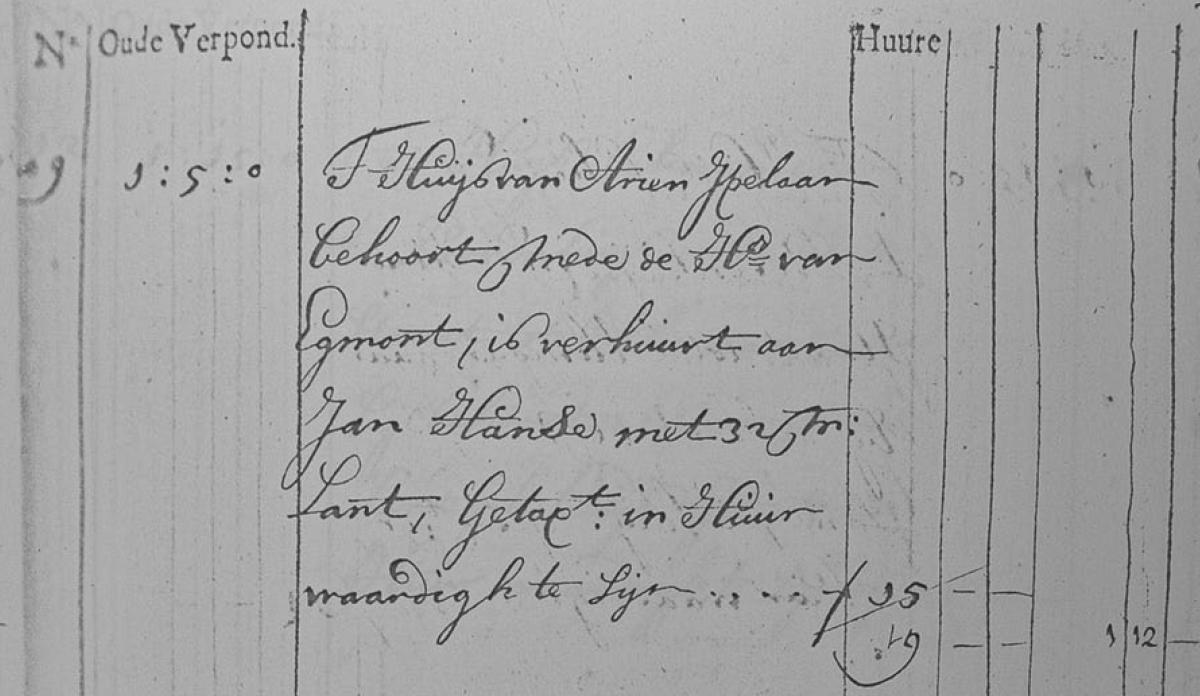 No. Oude Verpond. Huure
29 1:5:0 T Huijs van Arien Ypelaan
behoort mede de Hr. van
Egmont, is verhuurt aan
Jan Hanse met 32 m:
Lant, Getaxt: in Huur
waardigh te Sijn .... f 15 — —
19 — — 1 12 —